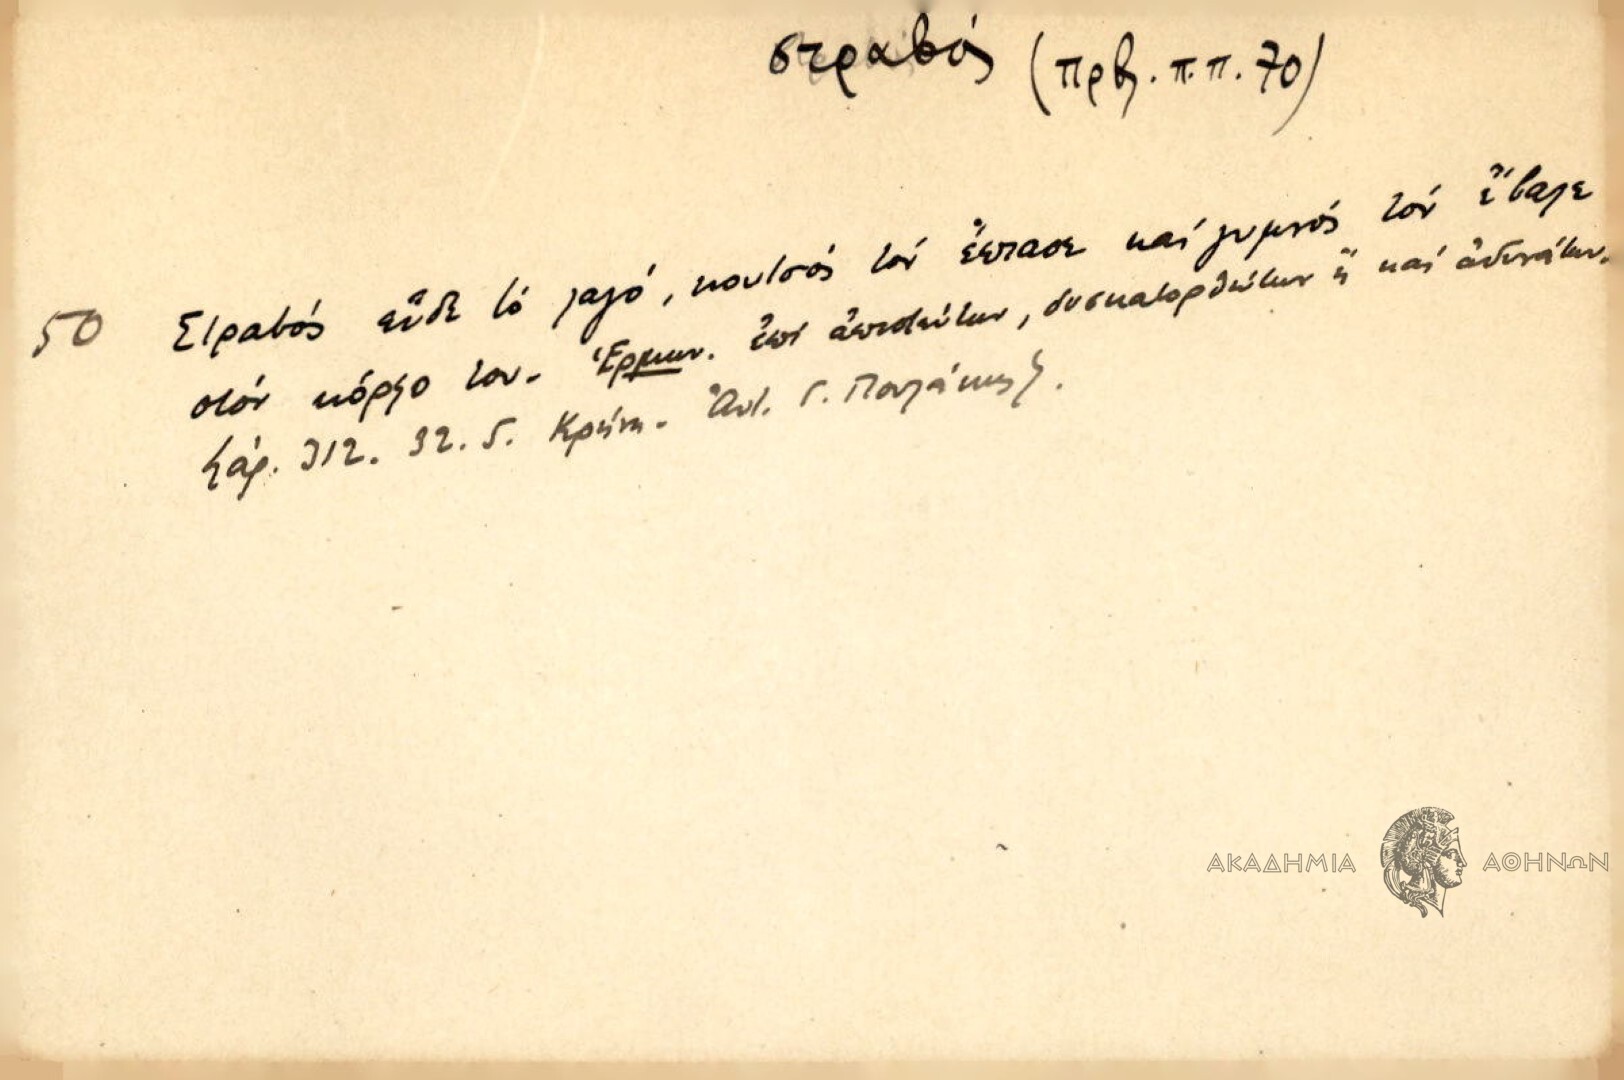 στραβός (πρβ. π.π. 70)
50 Στραβός εὗδε τό λαγό, κουτσός τόν ἔπιασε καί γυμνός τόν ἔβαλε
στόν κόρφο του. Ἑρμην. ἐπί ἀπιστεύτων, δυσκατορθώτων ἤ καί ἀδυνάτων.
λάρ. 312. 32. 5. Κρήνη. Ἀντ. Γ. Πουλάκης.
ΑΚΑΔΗΜΙΑ ΑΘΗΝΩΝ